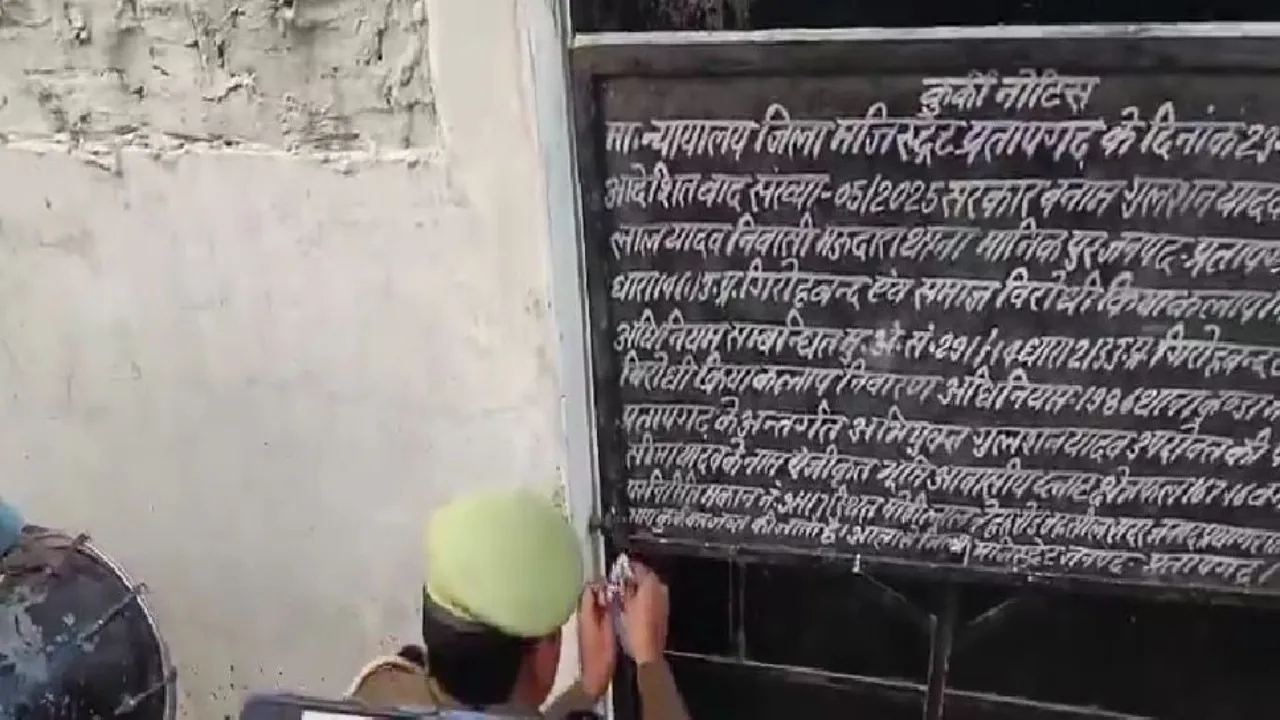 कुर्की नोटिस
मा. न्यायालय जिला मजिस्ट्रेट प्रतापगढ़ के दिनांक 23-
आदेशित वाद संख्या-05/2025 सरकार बनाम गुलशन यादव
लाल यादव निवासी मऊदारा थाना मानिकपुर जनपद-प्रतापग
धारा 14(1) उ.प्र. गिरोहबन्द एवं समाज विरोधी क्रियाकलाप
अधिनियम सम्बन्धित मु.अ.सं. धारा 2/3 उ.प्र. गिरोहबन्द
विरोधी क्रियाकलाप निवारण अधिनियम-1986 थाना कुण्डा
प्रतापगढ़ के अन्तर्गत अभियुक्त गुलशन यादव उपरोक्त की
सीमा यादव के नाम पंजीकृत भूमि आवासीय प्लाट क्षेत्रफल 167
पर निर्मित मकान
मजिस्ट्रेट जनपद- प्रतापगढ़।